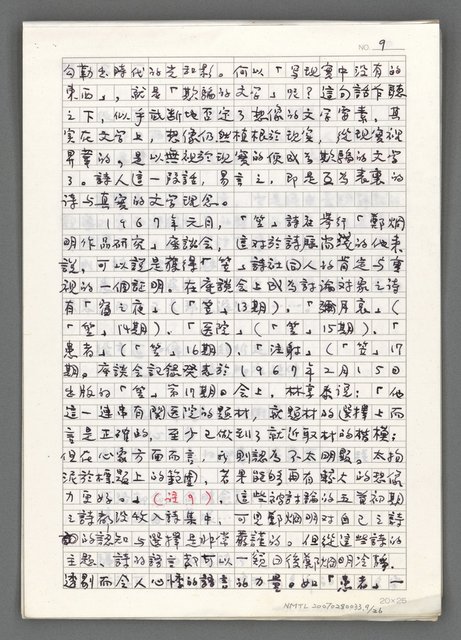 NO. 9
勾勒出時代的光和影。何以「寫現實中沒有的
東西」,就是「欺騙的文字」呢?這句話乍聽
之下,似乎武斷地否定了想像的文字需素,其
實在文字上,想像仍然植根於現實,從現實視
界
的,是以無視於現實的便成為欺騙的文字
了。詩人這一段話,易言之,即是互為表裏的
詩與真實的文字理念。
1967年元月,「笠」詩社舉行「鄭烱
明作品研究」座談會,這對於詩齡尚淺的他來
說,可以說是獲得「笠」詩社同人的肯定與重
視的一個証明。在座談會上成為討論对象之詩
有「宿之夜」(「笠」13期)、「彌月裏」(
「笠」14期)、「医院」(「笠」15期)、「
患者」(「笠」16期)、「注射」(「笠」17
期。座談会記錄発表於1967年2月15日
出版的「笠」第17期
上,林亨泰說:「他
這一連串有関医院的題材,就題材的選擇上而
言是正確的,至少已做到了就近取材的楷模;
但在心象方面而言,我則認為不太明顯。太拘
泥於標題上的範圍,若果能夠再有較大的想像
力更好。」(註9),這些被討論的五首初期
之詩都沒收入詩集中,可見鄭烱明对自己之詩
的認知与選擇是非常嚴謹的。但從這些詩的
主題、詩的語言都可以一窺日後鄭烱明冷靜、
透剔而令人心悸的語言的力量。如「患者」一
20×25
NMTL 20070280033, 9/26